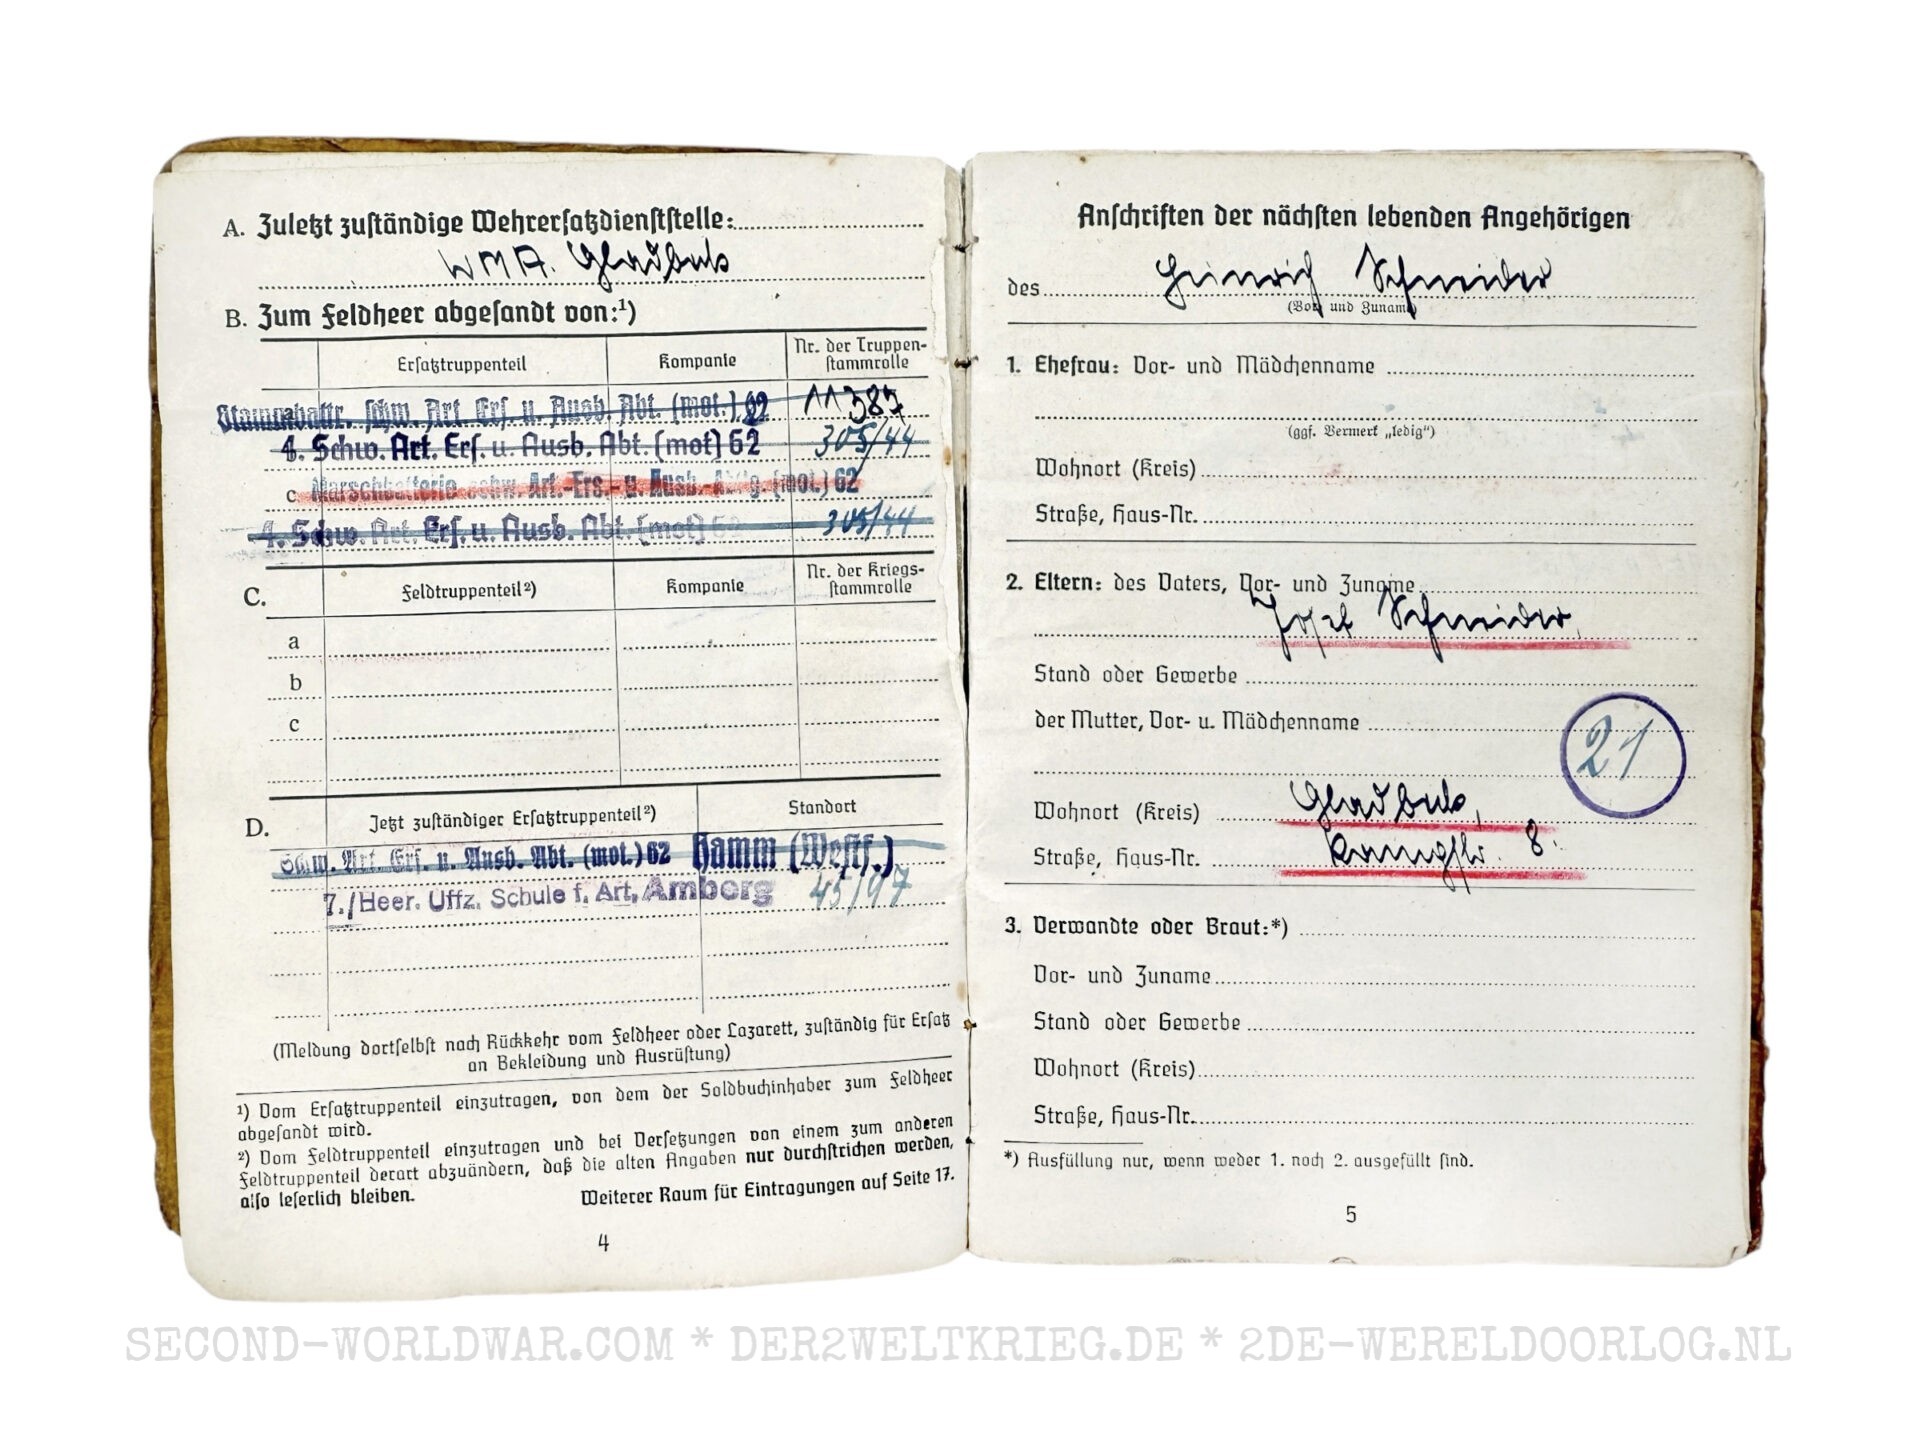 A. Zuletzt zuständige Wehrersatzdienststelle:
W.M.A. Gladbeck
B. Zum Feldheer abgesandt von:¹)
Ersatztruppenteil
Kompanie
Nr. der Truppen-
stammrolle
Stammbattr. schw. Art. Ers. u. Ausb. Abt. (mot.) 62
11387
4. Schw. Art. Ers. u. Ausb. Abt. (mot) 62
305/44
c Marschbatterie schw. Art.-Ers.- u. Ausb.-Abtlg. (mot.) 62
4. Schw. Art. Ers. u. Ausb. Abt. (mot) 62
305/44
C.
Feldtruppenteil²)
Kompanie
Nr. der Kriegs-
stammrolle
a
b
c
D.
Jetzt zuständiger Ersatztruppenteil²)
Standort
Schw. Art. Ers. u. Ausb. Abt. (mot.) 62 Hamm (Westf.)
7./Heer. Uffz. Schule f. Art. Amberg 45/97
(Meldung dortselbst nach Rückkehr vom Feldheer oder Lazarett, zuständig für Ersatz
an Bekleidung und Ausrüstung)
¹) Vom Ersatztruppenteil einzutragen, von dem der Soldbuchinhaber zum Feldheer
abgesandt wird.
²) Vom Feldtruppenteil einzutragen und bei Versetzungen von einem zum anderen
Feldtruppenteil derart abzuändern, daß die alten Angaben nur durchstrichen werden,
also leserlich bleiben.
Weiterer Raum für Eintragungen auf Seite 17.
4
Anschriften der nächsten lebenden Angehörigen
des Heinrich Schneider
(Vor- und Zuname)
1. Ehefrau: Vor- und Mädchenname
(ggf. Vermerk „ledig“)
Wohnort (Kreis)
Straße, Haus-Nr.
2. Eltern: des Vaters, Vor- und Zuname
Josef Schneider
Stand oder Gewerbe
der Mutter, Vor- u. Mädchenname
21
Wohnort (Kreis) Gladbeck,
Straße, Haus-Nr. 8.
3. Verwandte oder Braut:*)
Vor- und Zuname
Stand oder Gewerbe
Wohnort (Kreis)
Straße, Haus-Nr.
*) Ausfüllung nur, wenn weder 1. noch 2. ausgefüllt sind.
5
SECOND-WORLDWAR.COM * DER2WELTKRIEG.DE * 2DE-WERELDOORLOG.NL